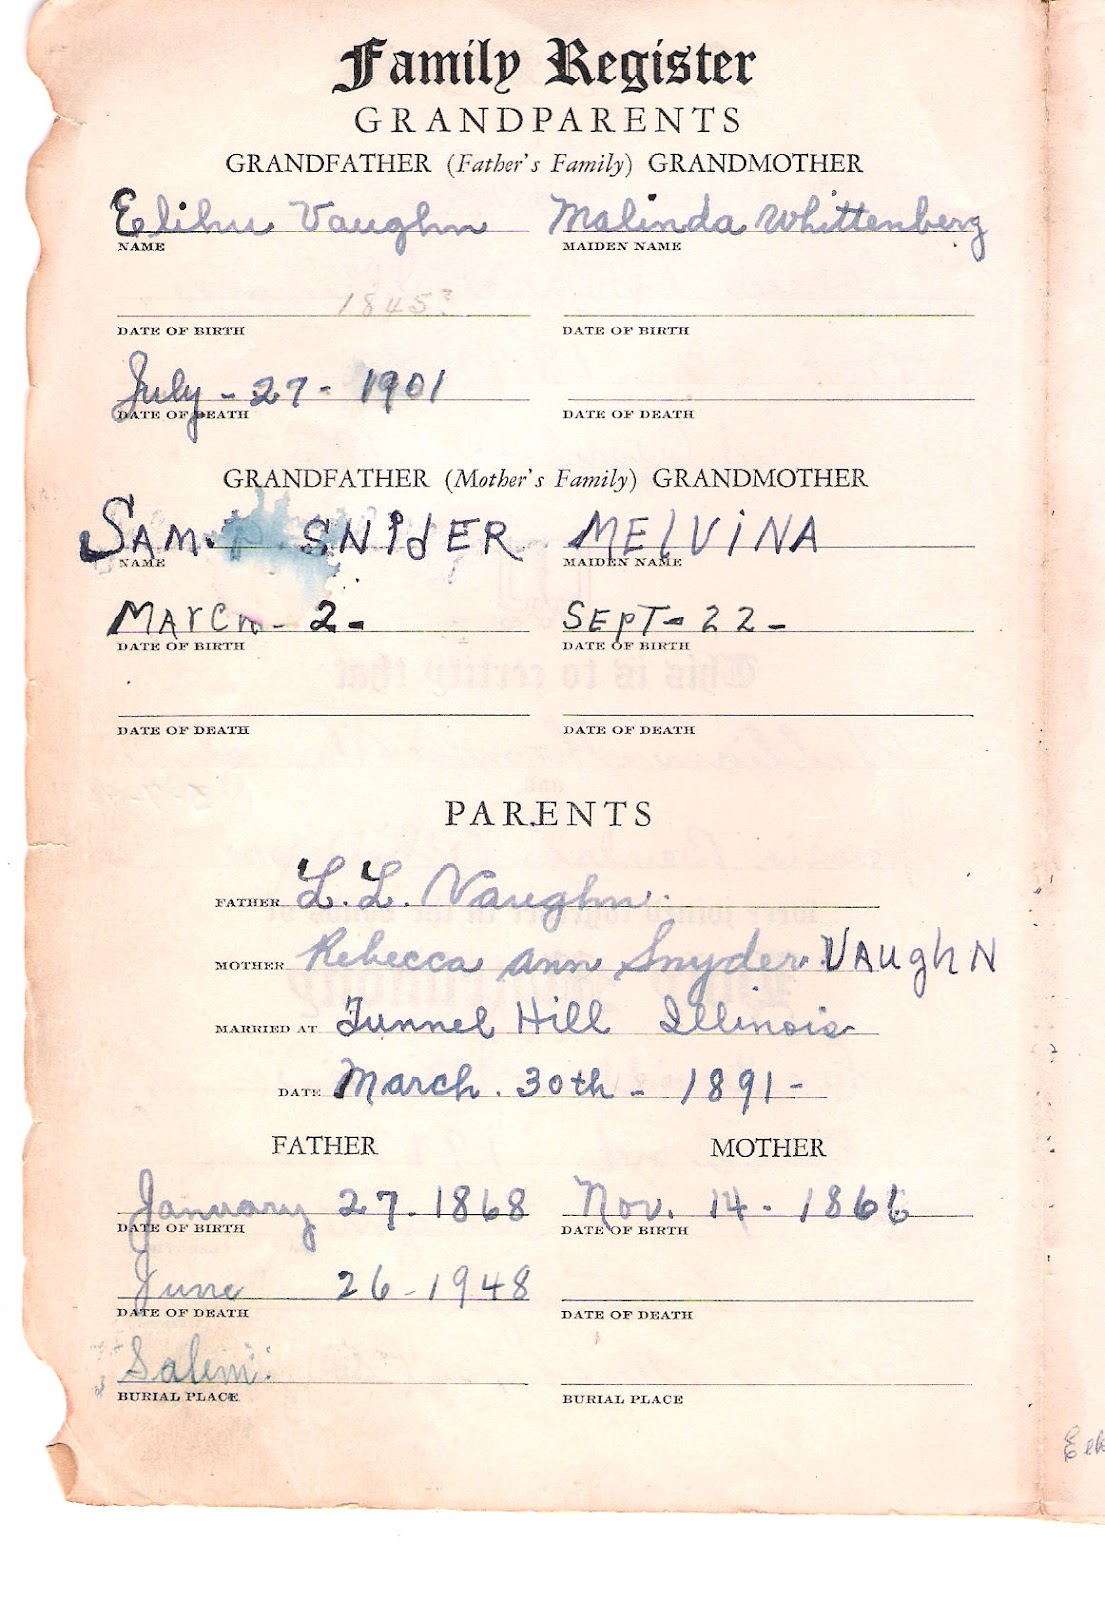 Family Register
GRANDPARENTS
GRANDFATHER (Father's Family) GRANDMOTHER
Elihu Vaughn Malinda Whittenberg
NAME MAIDEN NAME
1845?
DATE OF BIRTH DATE OF BIRTH
July - 27 - 1901
DATE OF DEATH DATE OF DEATH
GRANDFATHER (Mother's Family) GRANDMOTHER
SAM. P. SNIdER MElViNA
NAME MAIDEN NAME
MArCh - 2 - SEpT - 22 -
DATE OF BIRTH DATE OF BIRTH
DATE OF DEATH DATE OF DEATH
PARENTS
FATHER L. L. Vaughn.
MOTHER Rebecca ann Snyder. VAughN
MARRIED AT Tunnel Hill Illinois
DATE March. 30th - 1891 -
FATHER MOTHER
January 27. 1868 Nov. 14 - 1866
DATE OF BIRTH DATE OF BIRTH
June 26 - 1948
DATE OF DEATH DATE OF DEATH
Salem.
BURIAL PLACE BURIAL PLACE